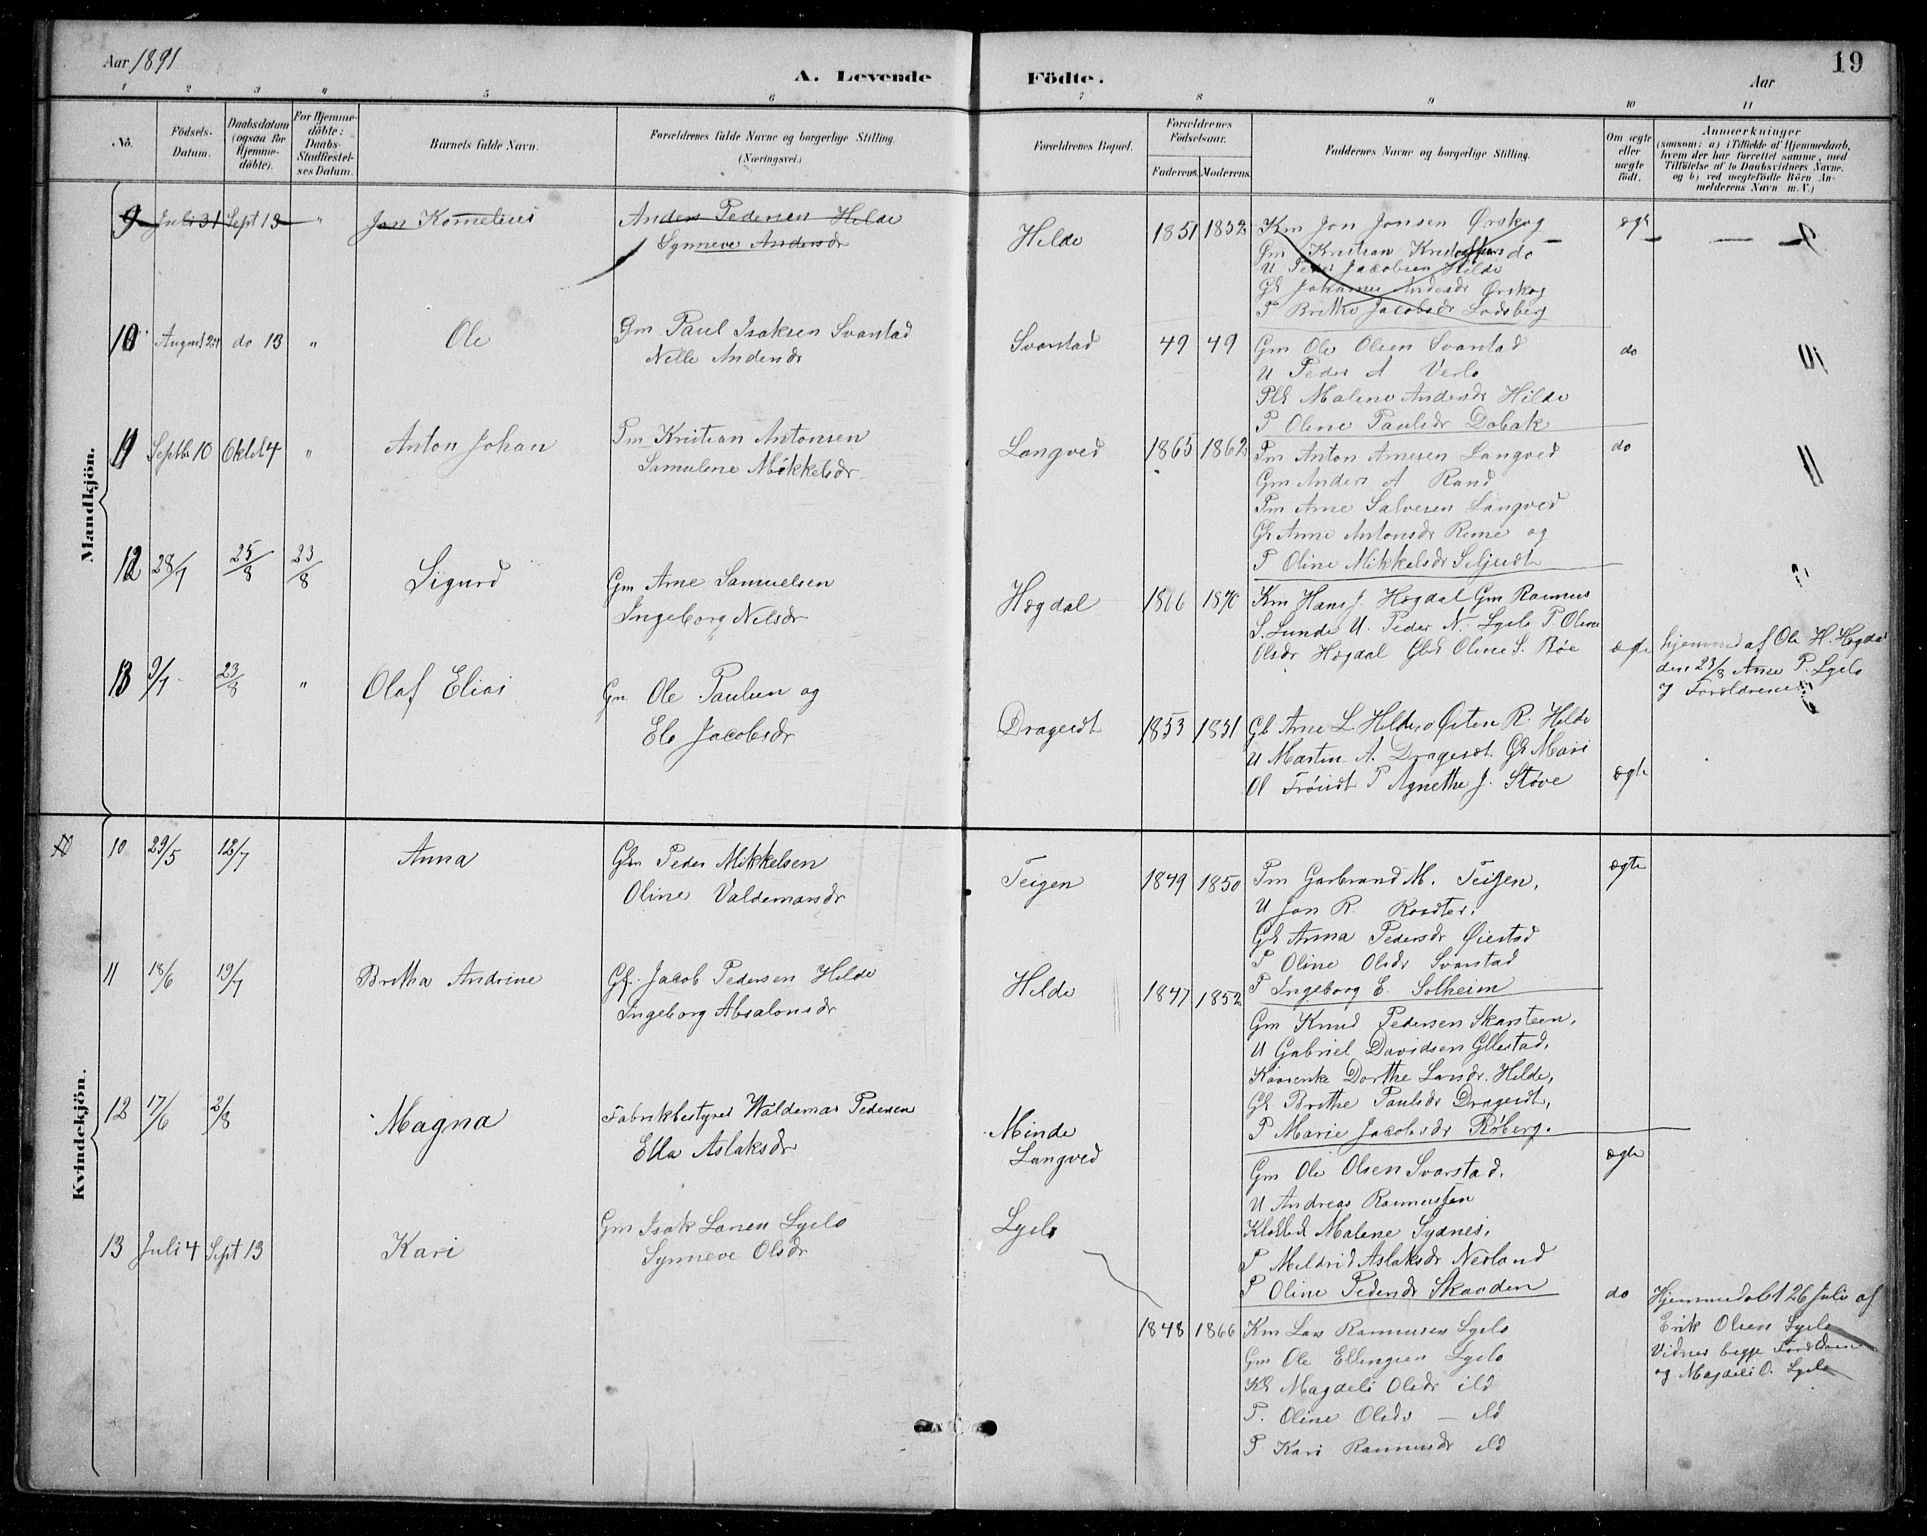 Aar 1891
A. Levende Födte.
Aar
19
1 2 3 4 5 6 7 8 9 10 11
No.
Födsels-
Datum.
Daabsdatum
(ogsaa för
Hjemme-
döbte).
For Hjemme-
döbte:
Daabs-
Stadfæstel-
ses Datum.
Barnets fulde Navn.
Forældrenes fulde Navne og borgerlige Stilling.
(Næringsvei.)
Forældrenes Bopæl.
Forældrenes
Födselsaar.
Faderens. Moderens.
Faddernes Navne og borgerlige Stilling.
Om ægte
eller
uægte
födt.
Anmærkninger
(saasom: a) i Tilfælde af Hjemmedaab,
hvem der har forrettet samme, med
Tilföielse af to Daabsvidners Navne.
og b) ved uægtefödte Börn An-
melderens Navn m. V.)
Mandkjön.
9 Juli 31 Sept 13 " Jon Kornelius Anders Pedersen Hilde
Synneve Andersdr
Hilde 1851 1852 Km Jon Jonsen Ørskog ægte
Gm Kristian Kristoffers do
U Peder Jacobsen Hilde
Gk Johanne Andersdr Ørskog
P Brithe Jacobsdr Lodsberg
10 August 24 do 13 " Ole Gm Paul Isaksen Svarstad
Nille Andersdr
Svarstad 49 49 Gm Ole Olsen Svarstad do
U Peder A Verlo
Malene Andersdr Hilde
P Oline Paulsdr Dobak
11 Septbr 10 Oktbr 4 " Anton Johan Pm Kristian Antonsen
Samulene Mikkelsdr
Langved 1865 1862 Pm Anton Arnesen Langved do
Gm Anders A Rand
Pm Arne Salvesen Langved
Gk Anne Antonsdr Reme og
P Oline Mikkelsdr
12 28/7 25/8 23/8 Sigurd Gm Arne Samuelsen
Ingeborg Nilsdr
Høgdal 1866 1870 Km Hans J. Høgdal Gm Rasmus
S. Lunde U. Peder N. Lyslo P Oline
Olsdr Høgdal Oline S. Bøe ægte
hjemmed af Ole H. Høgdal
den 23/8 Arne P. Lyslo
Forældrene
13 9/7 23/8 " Olaf Elias Gm Ole Paulsen og
Eli Jacobsdr
Dragesdt 1853 1851 Gk Arne L. Hilde, Østen R. Hilde
U Martin A. Dragesdt Gk Mari
Ol P Agnethe J. Støve ægte
Kvindekjön.
10 29/5 12/7 Anna Gm Peder Mikkelsen
Oline Valdemarsdr
Teigen 1849 1850 Pm Garbrand M. Teigen, ægte
U Jon R.
Gk Anna Pedersdr Øiestad
P Oline Olsdr Svarstad
P Ingeborg E. Solheim
11 18/6 19/7 Britha Andrine Gf. Jacob Pedersen Hilde
Ingeborg Absalonsdr
Hilde 1847 1852
Gm Knud Pedersen Skarsteen,
U Gabriel Davidsen Gllestad,
Dorthe Larsdr. Hilde,
Gk Brithe Paulsdr Dragesdt,
P Marie Jacobsdr Røberg.
12 17/6 2/8 Magna Fabrikbestyrer Waldemar Pedersen
Ella Aslaksdr
Minde
Langved
Gm Ole Olsen Svarstad, ægte
U Andreas Rasmussen
Malene Sydnes,
P Mildrid Aslaksdr Nesland
P Oline Pedersdr Skaaden
13 Juli 4 Sept 13 Kari Gm Isak Larsen Lyslo
Synneve Olsdr
Lyslo
1848 1866 Km Lars Rasmusen Lyslo do
Gm Ole Ellingsen Lyslo
Kk Magdeli Olsdr ild
P. Oline Olsdr — ild
P Kari Rasmusdr ild
Hjemmedøbt 26 Juli af
Erik Olsen Lyslo
Vidner begge Forældrene
og Magdeli O. Lyslo